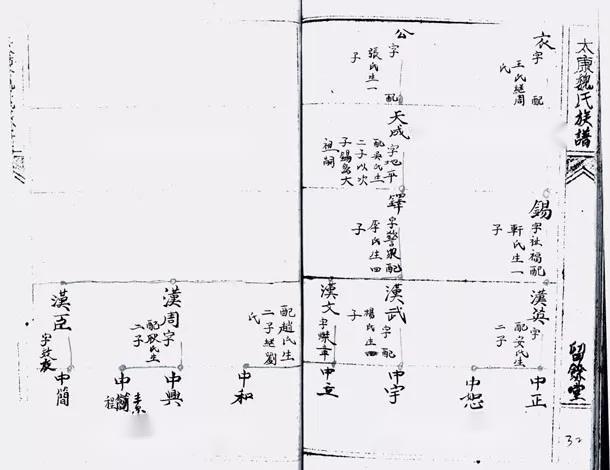 太康魏氏族譜
留餘堂
32
衣字 配
王氏繼周
氏
公字 配
張氏生一
子
天成字地平
配吳氏生
二子以次
子錫爲大
祖嗣
錫字祉福配
靳氏生一
子
鐸字警衆配
李氏生四
子
漢英字
配安氏生
二子
漢武字 配
楊氏生四
子
漢文字煥章
配趙氏生
二子繼劉
氏
漢周字
配耿氏生
二子
漢臣
字
中正
中恕
中宇
中立
中和
中興
中簡 素
程
中簡